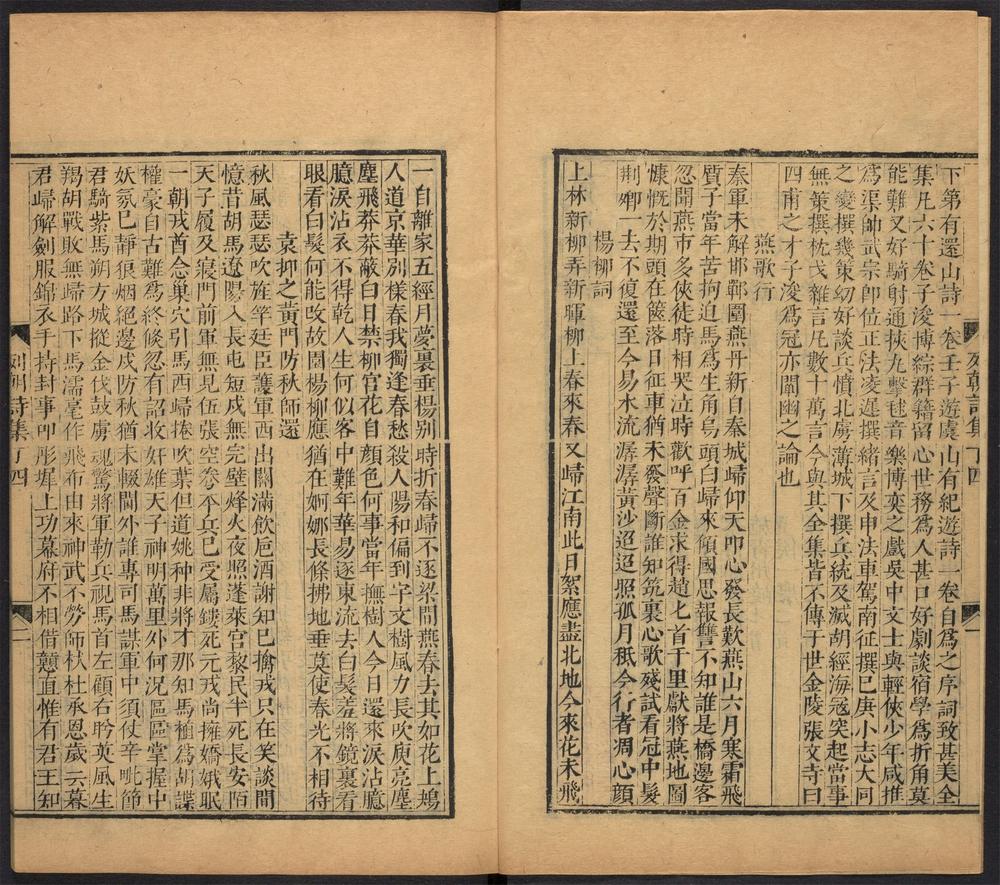 下第有還山詩一卷壬子遊虞山有紀遊詩一卷自爲之序詞致甚美全
集凡六十卷子浚博綜群籍留心世務爲人甚口好劇談宿學爲折角莫
能難又好騎射通挾九擊毬音樂博奕之戲吳中文士與輕俠少年咸推
爲渠帥武宗卽位正法凌遲撰緒言及申法車駕南征撰巳庚小志大同
之變撰幾策幼好談兵憤北虜薄城下撰兵統及滅胡經海寇突起當事
無策撰枕戈雜言凡數十萬言今與其全集皆不傳于世金陵張文寺曰
四甫之才子浚爲冠亦闡幽之論也
燕歌行
秦軍未解邯鄲圍燕丹新自秦城歸仰天叩心發長歎燕山六月寒霜飛
質子當年苦拘迫馬爲生角烏頭白歸來傾國思報讐不知誰是橋邊客
忽聞燕市多俠徒時相哭泣時歡呼百金求得趙匕首千里獻將燕地圖
慷慨於期頭在篋落日征車猶未發聲斷誰知筑裏心歌殘試看冠中髮
荆卿一去不復還至今易水流潺潺黃沙迢迢照孤月秪令行者凋心顏
楊柳詞
上林新柳弄新暉柳上春來春又歸江南此日絮應盡北地今來花未飛
列朝詩集丁四
一
一自離家五經月夢裏垂楊别時折春歸不逐梁間燕春去其如花上鳩
人道京華別樣春我獨逢春愁殺人陽和偏到宇文樹風力長吹庾亮塵
塵飛莽莽蔽白日禁柳宮花自顏色何事當年撫樹人今日還來淚沾臆
臆淚沾衣不得乾人生何似客中難年華易逐東流去白髮羞將鏡裏看
眼看白髮何能改故園楊柳應猶在婀娜長條拂地垂莫使春光不相待
袁抑之黃門防秋師還
秋風瑟瑟吹旌竿廷臣護軍西出關滿飲巵酒謝知巳擒戎只在笑談間
憶昔胡馬遼陽入長屯短戍無完壁烽火夜照蓬萊宮黎民半死長安陌
天子履及寢門前軍無見伍張空弮本兵已受屬鏤死元戎尚擁嬌娥眠
一朝戎酋念巢穴引馬西歸捲吹葉但道姚种非將才那知馬植爲胡諜
權豪自古難爲終倐忽有詔收奸雄天子神明萬里外何況區區掌握中
妖氛巳靜狼烟絕邊戍防秋猶未輟閫外誰專司馬謀軍中須仗辛毗節
君騎紫馬朔方城摐金伐鼓虜魂驚將軍勒兵視馬首左顧右盻英風生
羯胡戰敗無歸路下馬濡毫作飛布由來神武不勞師杕杜承恩歲云暮
君歸解劍服錦衣手持封事叩彤墀上功幕府不相借戇直惟有君王知
列朝詩集丁四
二